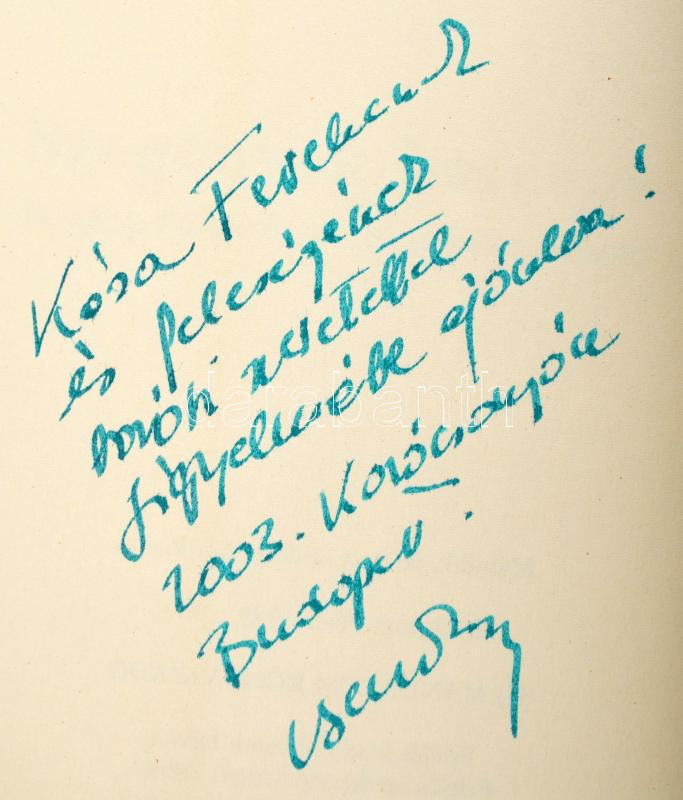 Kósa Ferencnek
és feleségének
baráti szeretettel
figyelmébe ajánlva!
2003. Karácsonyán
Budapest.
darabanth